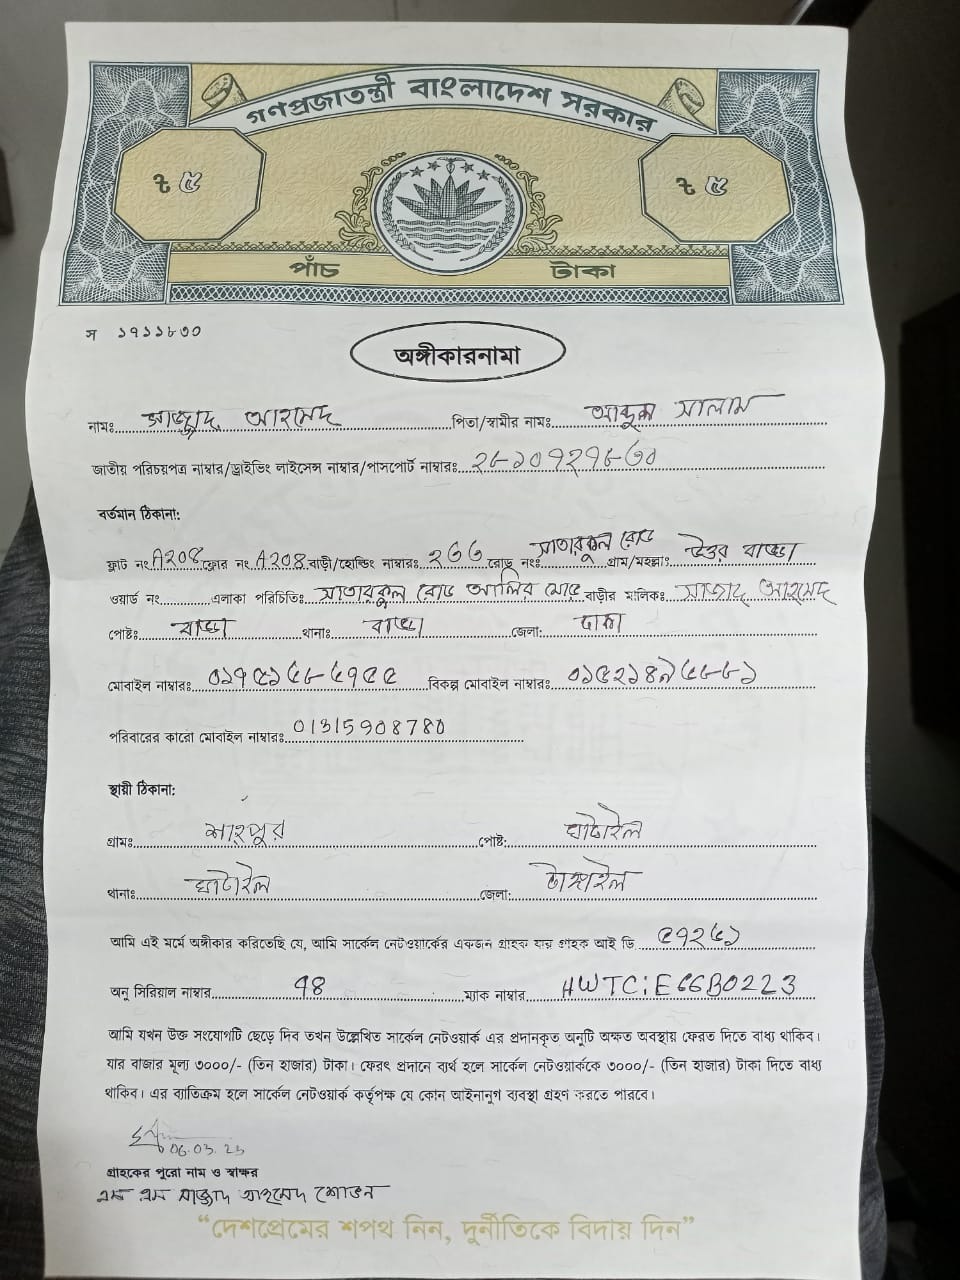 গণপ্রজাতন্ত্রী বাংলাদেশ সরকার
৳ ৫ ৳ ৫
পাঁচ টাকা
স ১৭১১৮৩০
অঙ্গীকারনামা
নামঃ সাজ্জাদ আহমেদ পিতা/স্বামীর নামঃ আব্দুল সালাম
জাতীয় পরিচয়পত্র নাম্বার/ড্রাইভিং লাইসেন্স নাম্বার/পাসপোর্ট নাম্বারঃ
বর্তমান ঠিকানা:
ফ্লাট নং A২০৪ ফ্লোর নং A২০৪ বাড়ী/হোল্ডিং নাম্বারঃ ২৬৬ রোড নংঃ সাতারকুল রোড গ্রাম/মহল্লাঃ উত্তর বাড্ডা
ওয়ার্ড নং এলাকা পরিচিতিঃ সাতারকুল রোড আলির মোড় বাড়ীর মালিকঃ সাজ্জাদ আহমেদ
পোষ্টঃ বাড্ডা থানাঃ বাড্ডা জেলা: ঢাকা
মোবাইল নাম্বারঃ বিকল্প মোবাইল নাম্বারঃ
পরিবারের কারো মোবাইল নাম্বারঃ 01315908780
স্থায়ী ঠিকানা:
গ্রামঃ শাহপুর পোষ্ট: ঘাটাইল
থানাঃ ঘাটাইল জেলা: টাঙ্গাইল
আমি এই মর্মে অঙ্গীকার করিতেছি যে, আমি সার্কেল নেটওয়ার্কের একজন গ্রাহক যার গ্রাহক আই ডি
অনু সিরিয়াল নাম্বার ম্যাক নাম্বার HWTC:E66B0223
আমি যখন উক্ত সংযোগটি ছেড়ে দিব তখন উল্লেখিত সার্কেল নেটওয়ার্ক এর প্রদানকৃত অনুটি অক্ষত অবস্থায় ফেরত দিতে বাধ্য থাকিব।
যার বাজার মূল্য ৩০০০/- (তিন হাজার) টাকা। ফেরৎ প্রদানে ব্যর্থ হলে সার্কেল নেটওয়ার্ককে ৩০০০/- (তিন হাজার) টাকা দিতে বাধ্য
থাকিব। এর ব্যতিক্রম হলে সার্কেল নেটওয়ার্ক কর্তৃপক্ষ যে কোন আইনানুগ ব্যবস্থা গ্রহণ করতে পারবে।
06.03.23
গ্রাহকের পুরো নাম ও স্বাক্ষর
এস এম সাজ্জাদ আহমেদ শোভন
“দেশপ্রেমের শপথ নিন, দুর্নীতিকে বিদায় দিন”